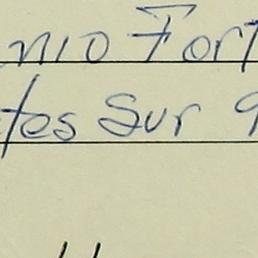 nio Fort
tes Sur 9